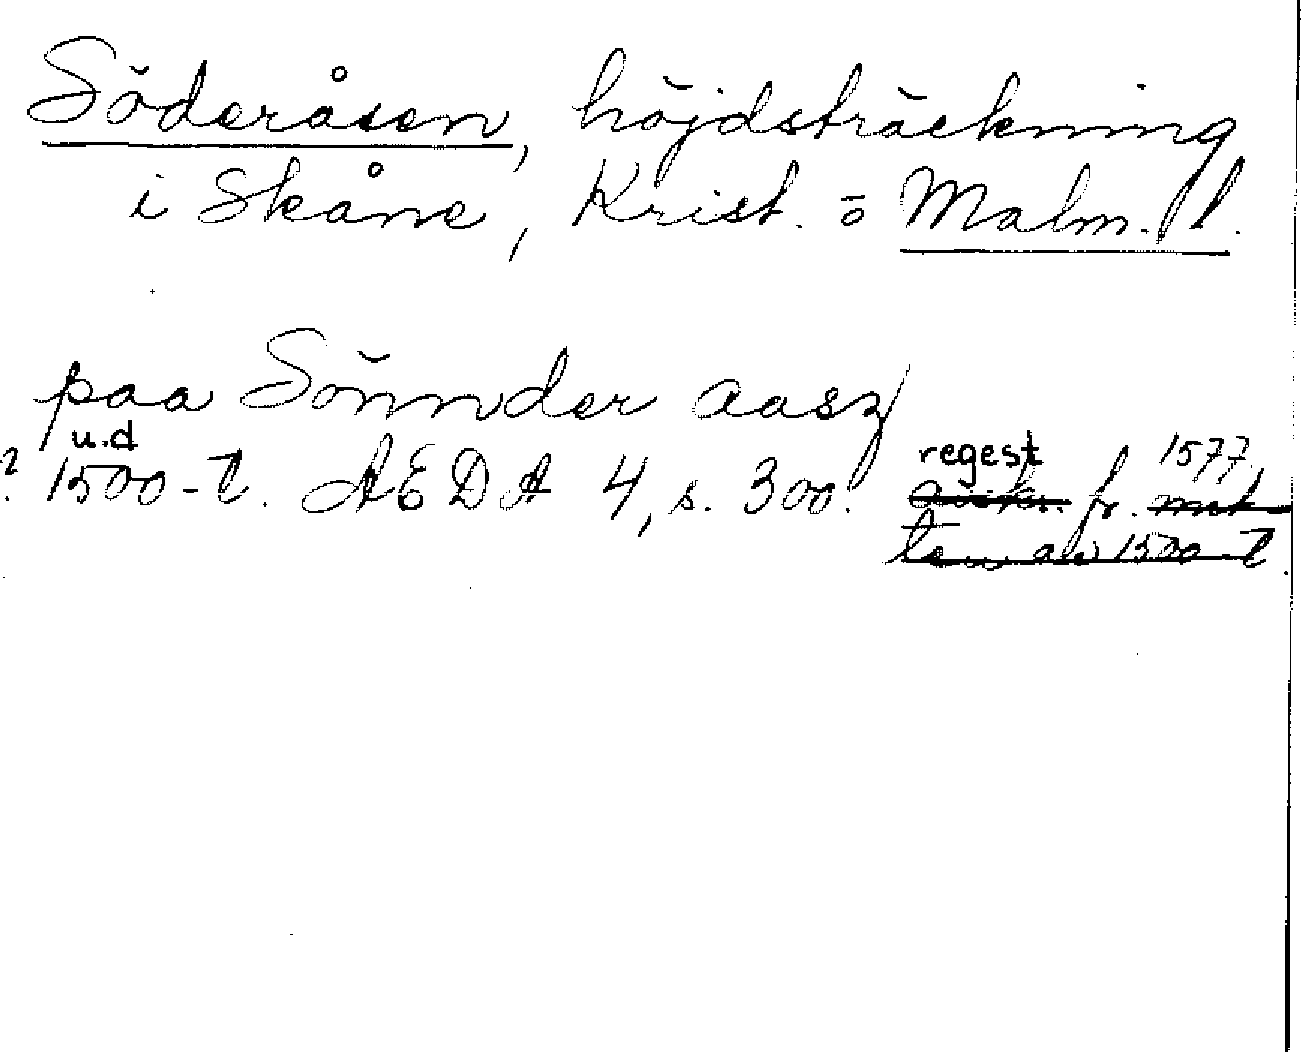 Söderåsen, höjdsträckning
i Skåne, Krist. o Malm. l.
paa Sönnder aasz
u.d
? 1500-t. AEDA 4, s. 300. regest fr. 1577,
ten av 1500-t